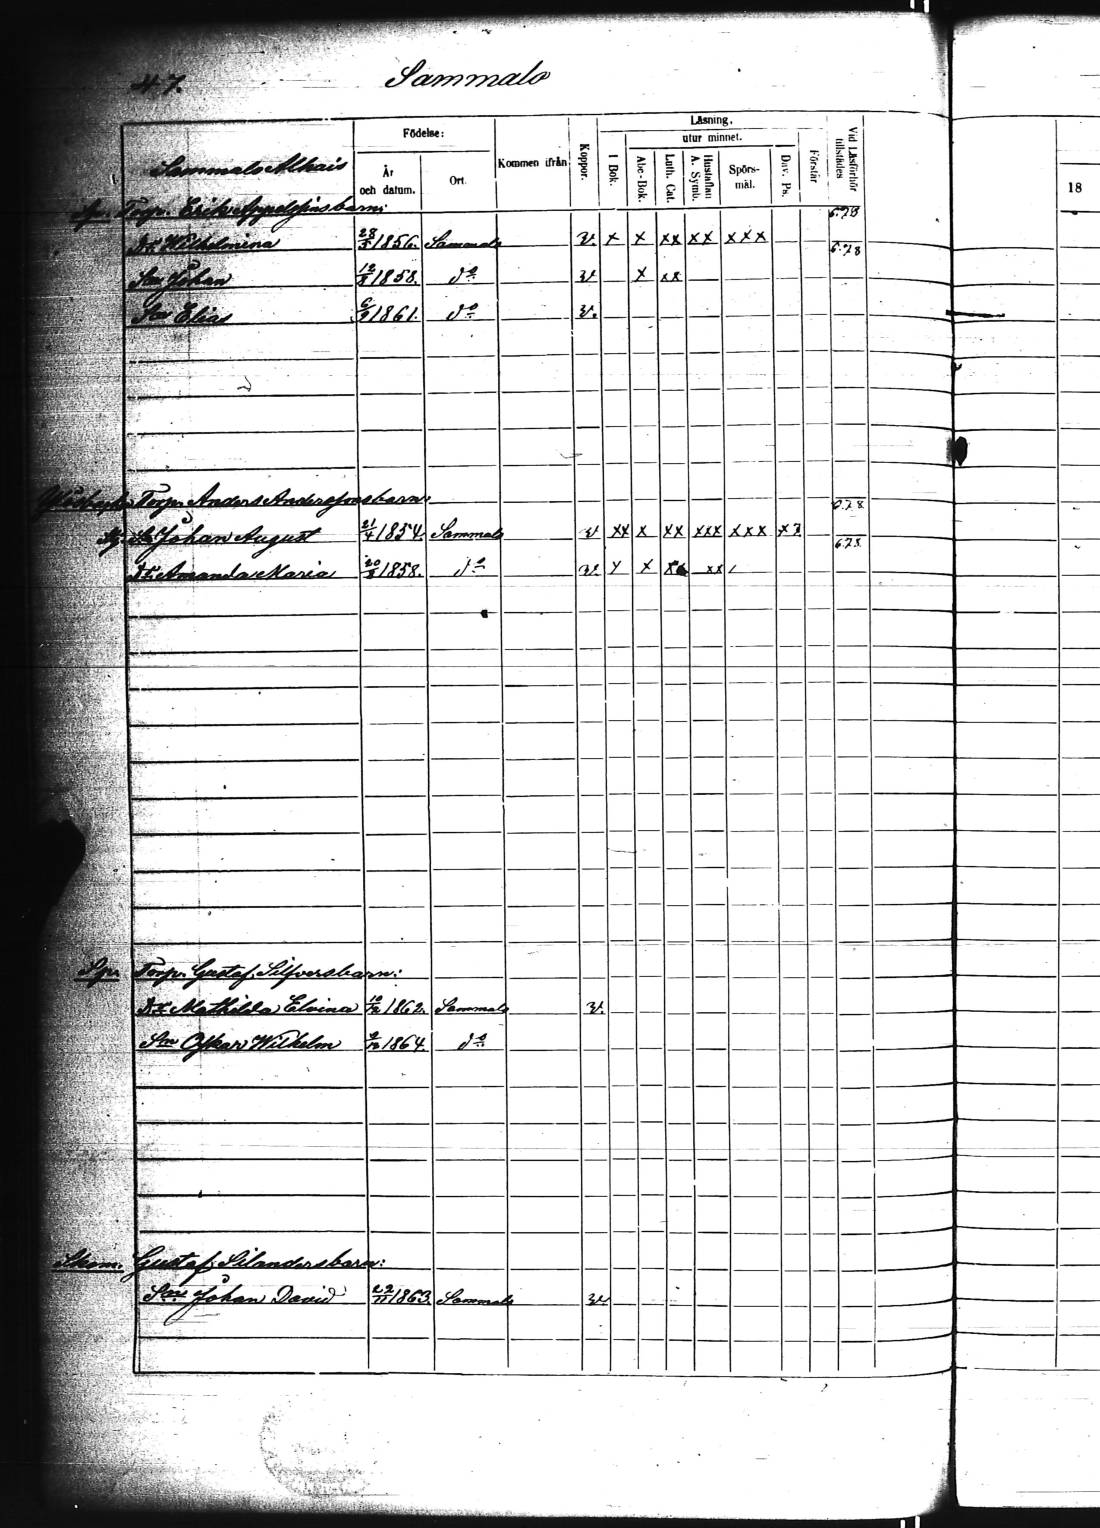 47. Sammalo
Födelse:
Läsning.
utur minnet.
År och datum.
Ort.
Kommen ifrån
Koppor.
I Bok.
Abc-Bok.
Luth. Cat.
Hustaflan A. Symb.
Spörsmål.
Dav. Ps.
Förstår
Vid Läsförhör tillstädes
18
1. Sammalo Alhais
Torp. Erik Appelgrins barn: 6.78
Dr Wilhelmina 28/5 1856. Sammalo v. x x xx xx xxx 6.78
Son Johan 12/8 1858. do v x xx
Son Elias 6/9 1861. do v.
Torp. Anders Anderssons barn: 6.78
Son Johan August 21/4 1854. Sammalo v xx x xx xxx xxx x 6.78
Dr Amanda Maria 20/8 1858. do v. x xx
Sp. Torp. Gustaf Silfvers barn:
Dr Mathilda Elvina 10/12 1862. Sammalo v.
Son Oskar Wilhelm 9/12 1864. do
Skom. Gustaf Silanders barn:
Son Johan David 22/11 1863. Sammalo v.